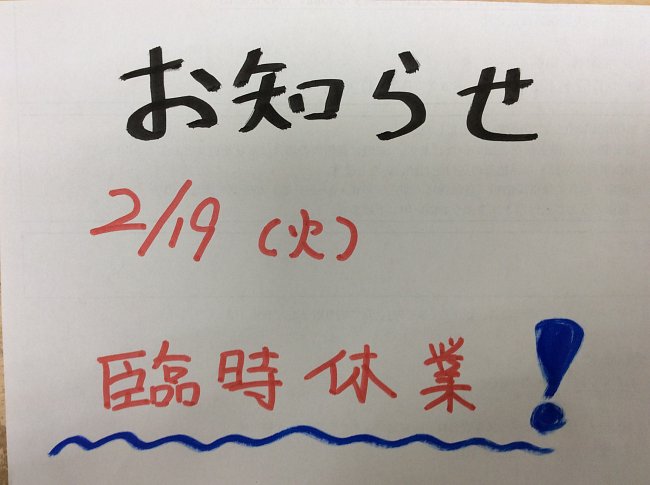 お知らせ
2/19（火）
臨時休業！